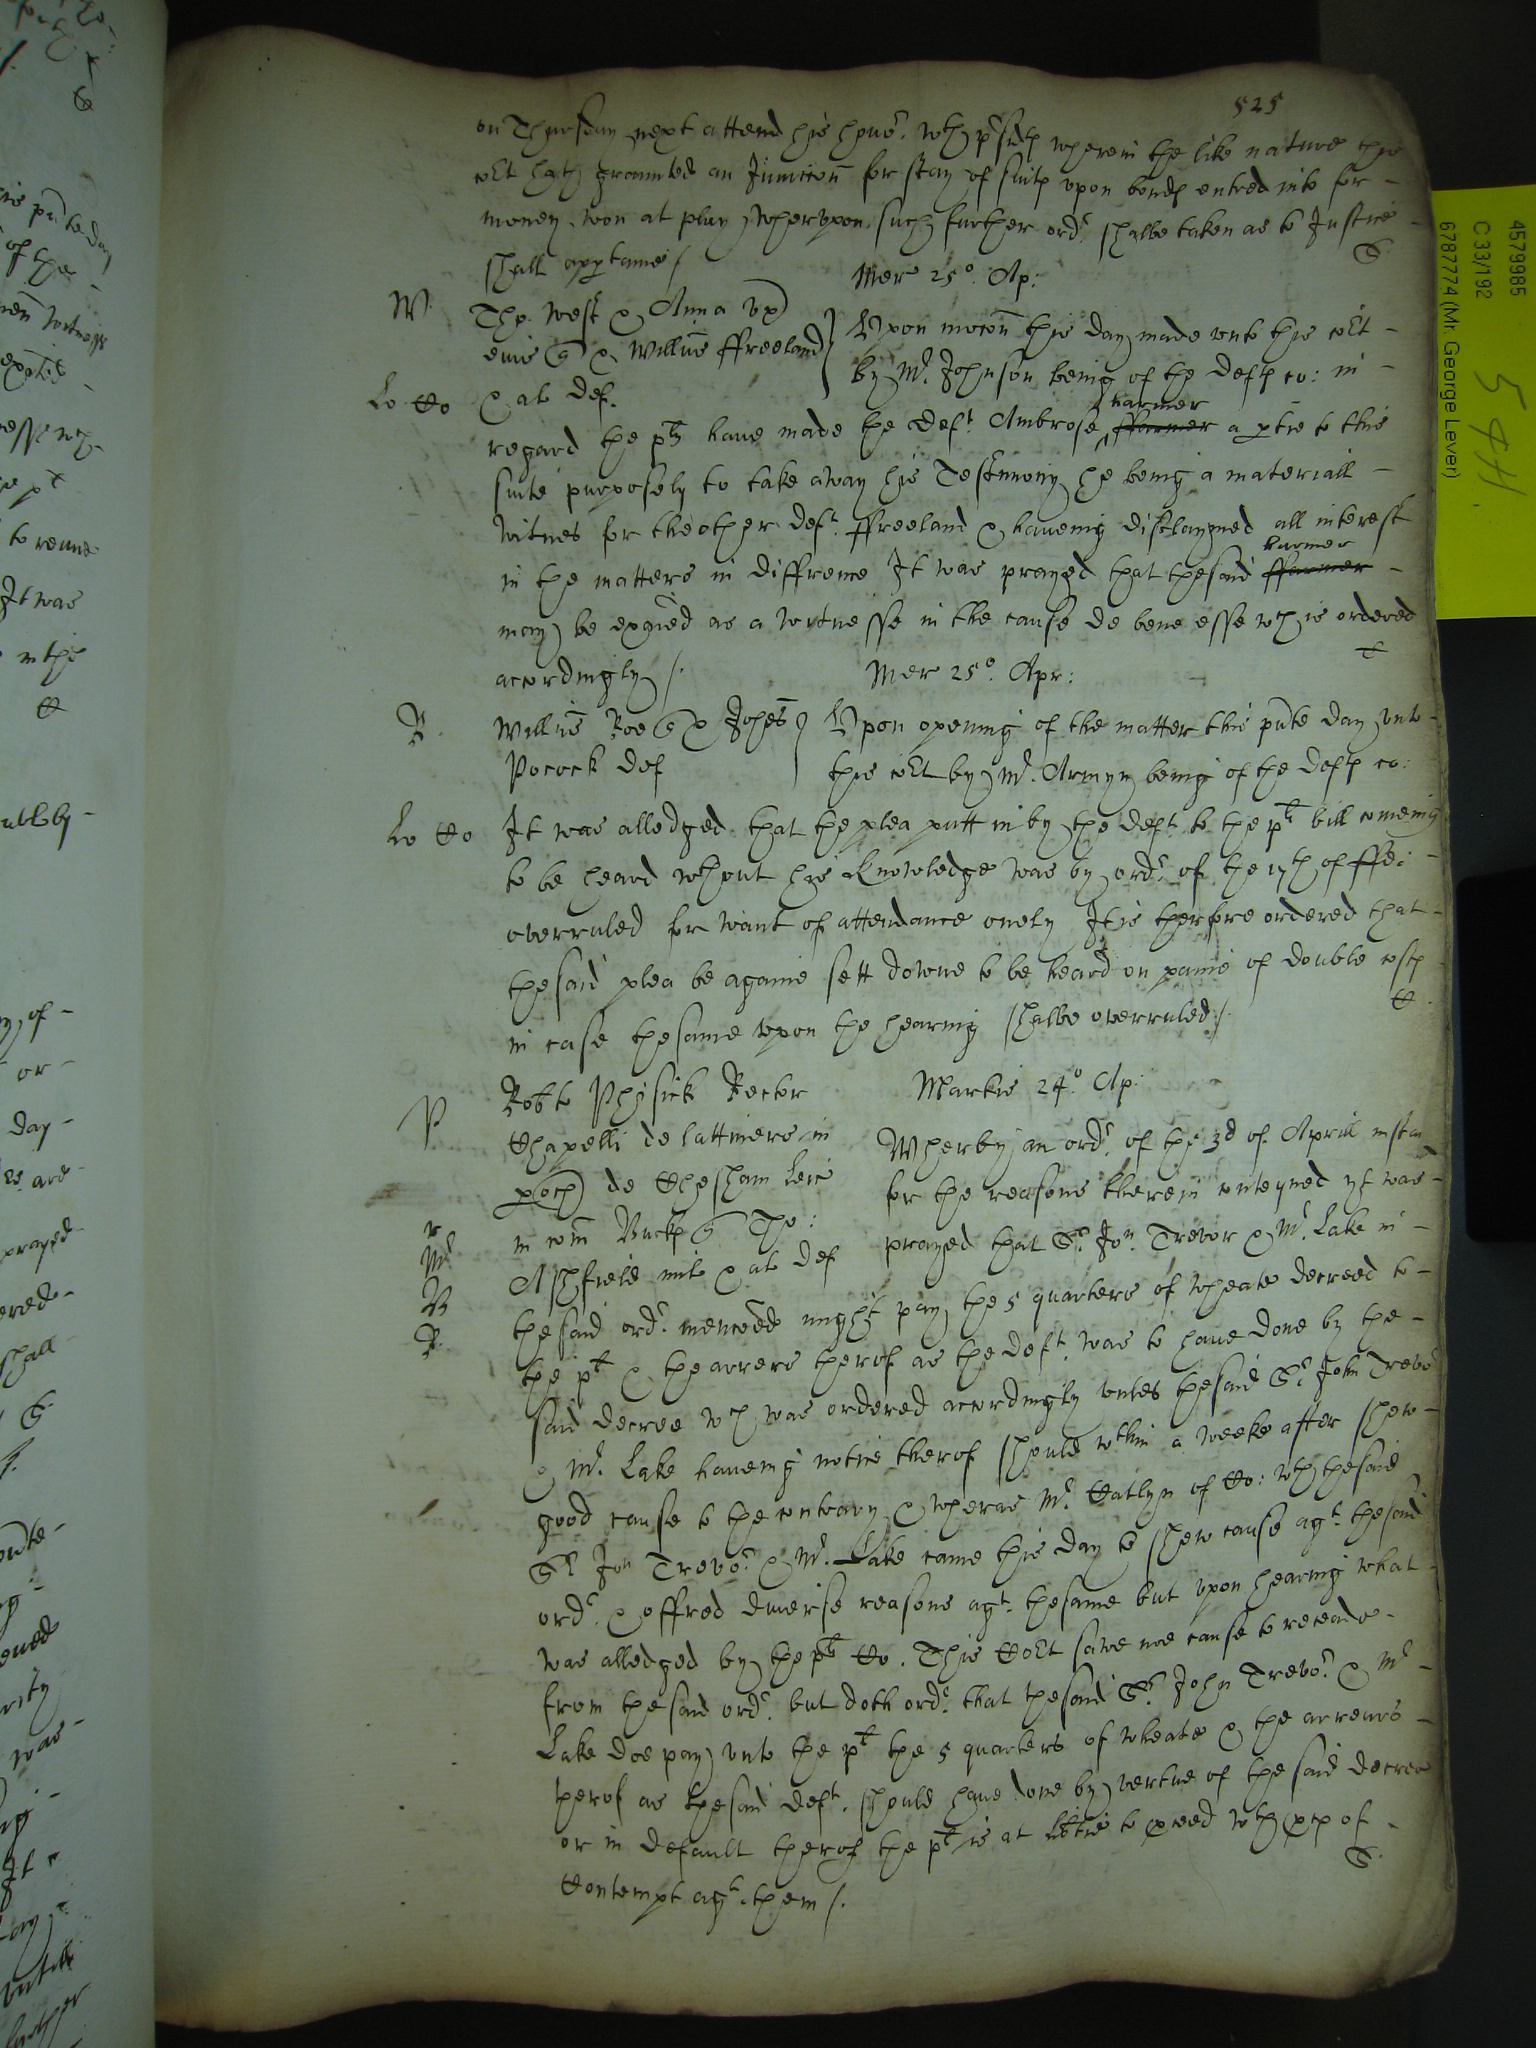 525
on Thursday next attend his honr. wth prsidts wherein the like nature this
cort hath graunted an Iunccon for stay of suits vpon bonds entred into for -
money won at play whervpon such further ordr. shalbe taken as to Iustice -
shall apptaine /
Mer 25o. Ap:
W.
Tho. West & Anna vx
eius & Willus ffreeland
& al def.
Upon mocon this day made vnto this cort -
by Mr. Johnson being of the defts co: in -
regard the plts haue made the deft. Ambrose ffarmer harmer a ptie to this
suite purposely to take away his Testimony he being a materiall -
witnes for theother deft. ffreeland & haueing disclaymed all interest
in the matters in diffrence It was prayed that thesaid ffarmer harmer -
may be exaied as a witnesse in the cause de bene esse wch is ordered
acordingly /.
Mer 25o. Apr:
R.
Willus Roe & Johes
Pocock def
Upon opening of the matter this pnte day vnto -
this cort by Mr. Armyn being of the defts co:
It was alledged that the plea putt in by the deft. to the plts bill comeing
to be heard wthout his knowledge was by ordr. of the 17th of ffe: -
overruled for want of attendance onely It is therfore ordered that -
thesaid plea be againe sett downe to be heard on paine of double costs -
in case thesame vpon the hearing shalbe overruled /.
Martis 24o. Ap:
P
Robto Phisick Rector
Chapelli de lattimers in
poch de Chesham leic
in com Bucks Tho:
Ashfield milt & al def
Wherby an ordr. of the 3d of Aprill instan
for the reasons therein conteyned yt was -
prayed that Sr. Jon. Trevor & Mr. Lake in -
thesaid ordr. mencoed might pay the 5 quarters of wheate decreed to -
the plt & thearrers therof as the deft. was to haue done by the -
said decree wch was ordered acordingly vnles thesaid Sr. John Trevor
& Mr. Lake haueing notice therof should wthin a weeke after shew -
good cause to the contrary & wheras Mr. Catlyn of Co: wth thesaid
Sr. Jon Trevor. & Mr. Lake came this day to shew cause agt. thesaid
ordr. & offred diuerse reasons agt. thesame but vpon hearing what -
was alledged by the plts Co. This Cort sawe noe cause to receade -
from thesaid ordr. but doth ordr. that thesaid Sr. John Trevor. & Mr -
Lake doe pay vnto the plt the 5 quarters of wheate & the arreares -
therof as thesaid deft. should haue done by vertue of the said decree
or in default therof the plt is at libtie to pceed wth pces of -
Contempt agt. them /.
4579985
C 33/192
6787774 (Mr. George Lever)